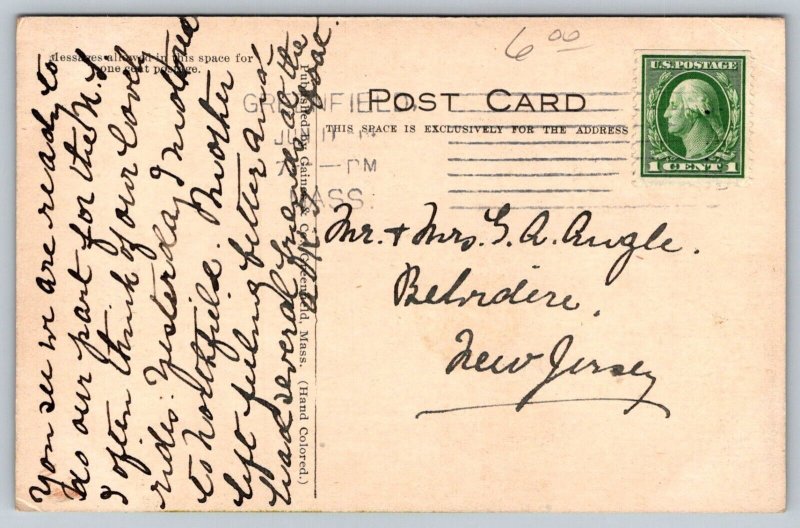 Messages allowed in this space for
one cent postage.
6 00
POST CARD
THIS SPACE IS EXCLUSIVELY FOR THE ADDRESS
U.S. POSTAGE
1 CENT 1
GREENFIELD,
PM
MASS.
Mr. + Mrs. G. A. Angle.
Belvidere,
New Jersey
You see we are ready to
do our part for the U.S.
I often think of our lovely
rides. Yesterday I motored
to Northfield. Mother
left feeling better and
had several friends at the
Published by Gaines & Co., Greenfield, Mass. (Hand Colored.)